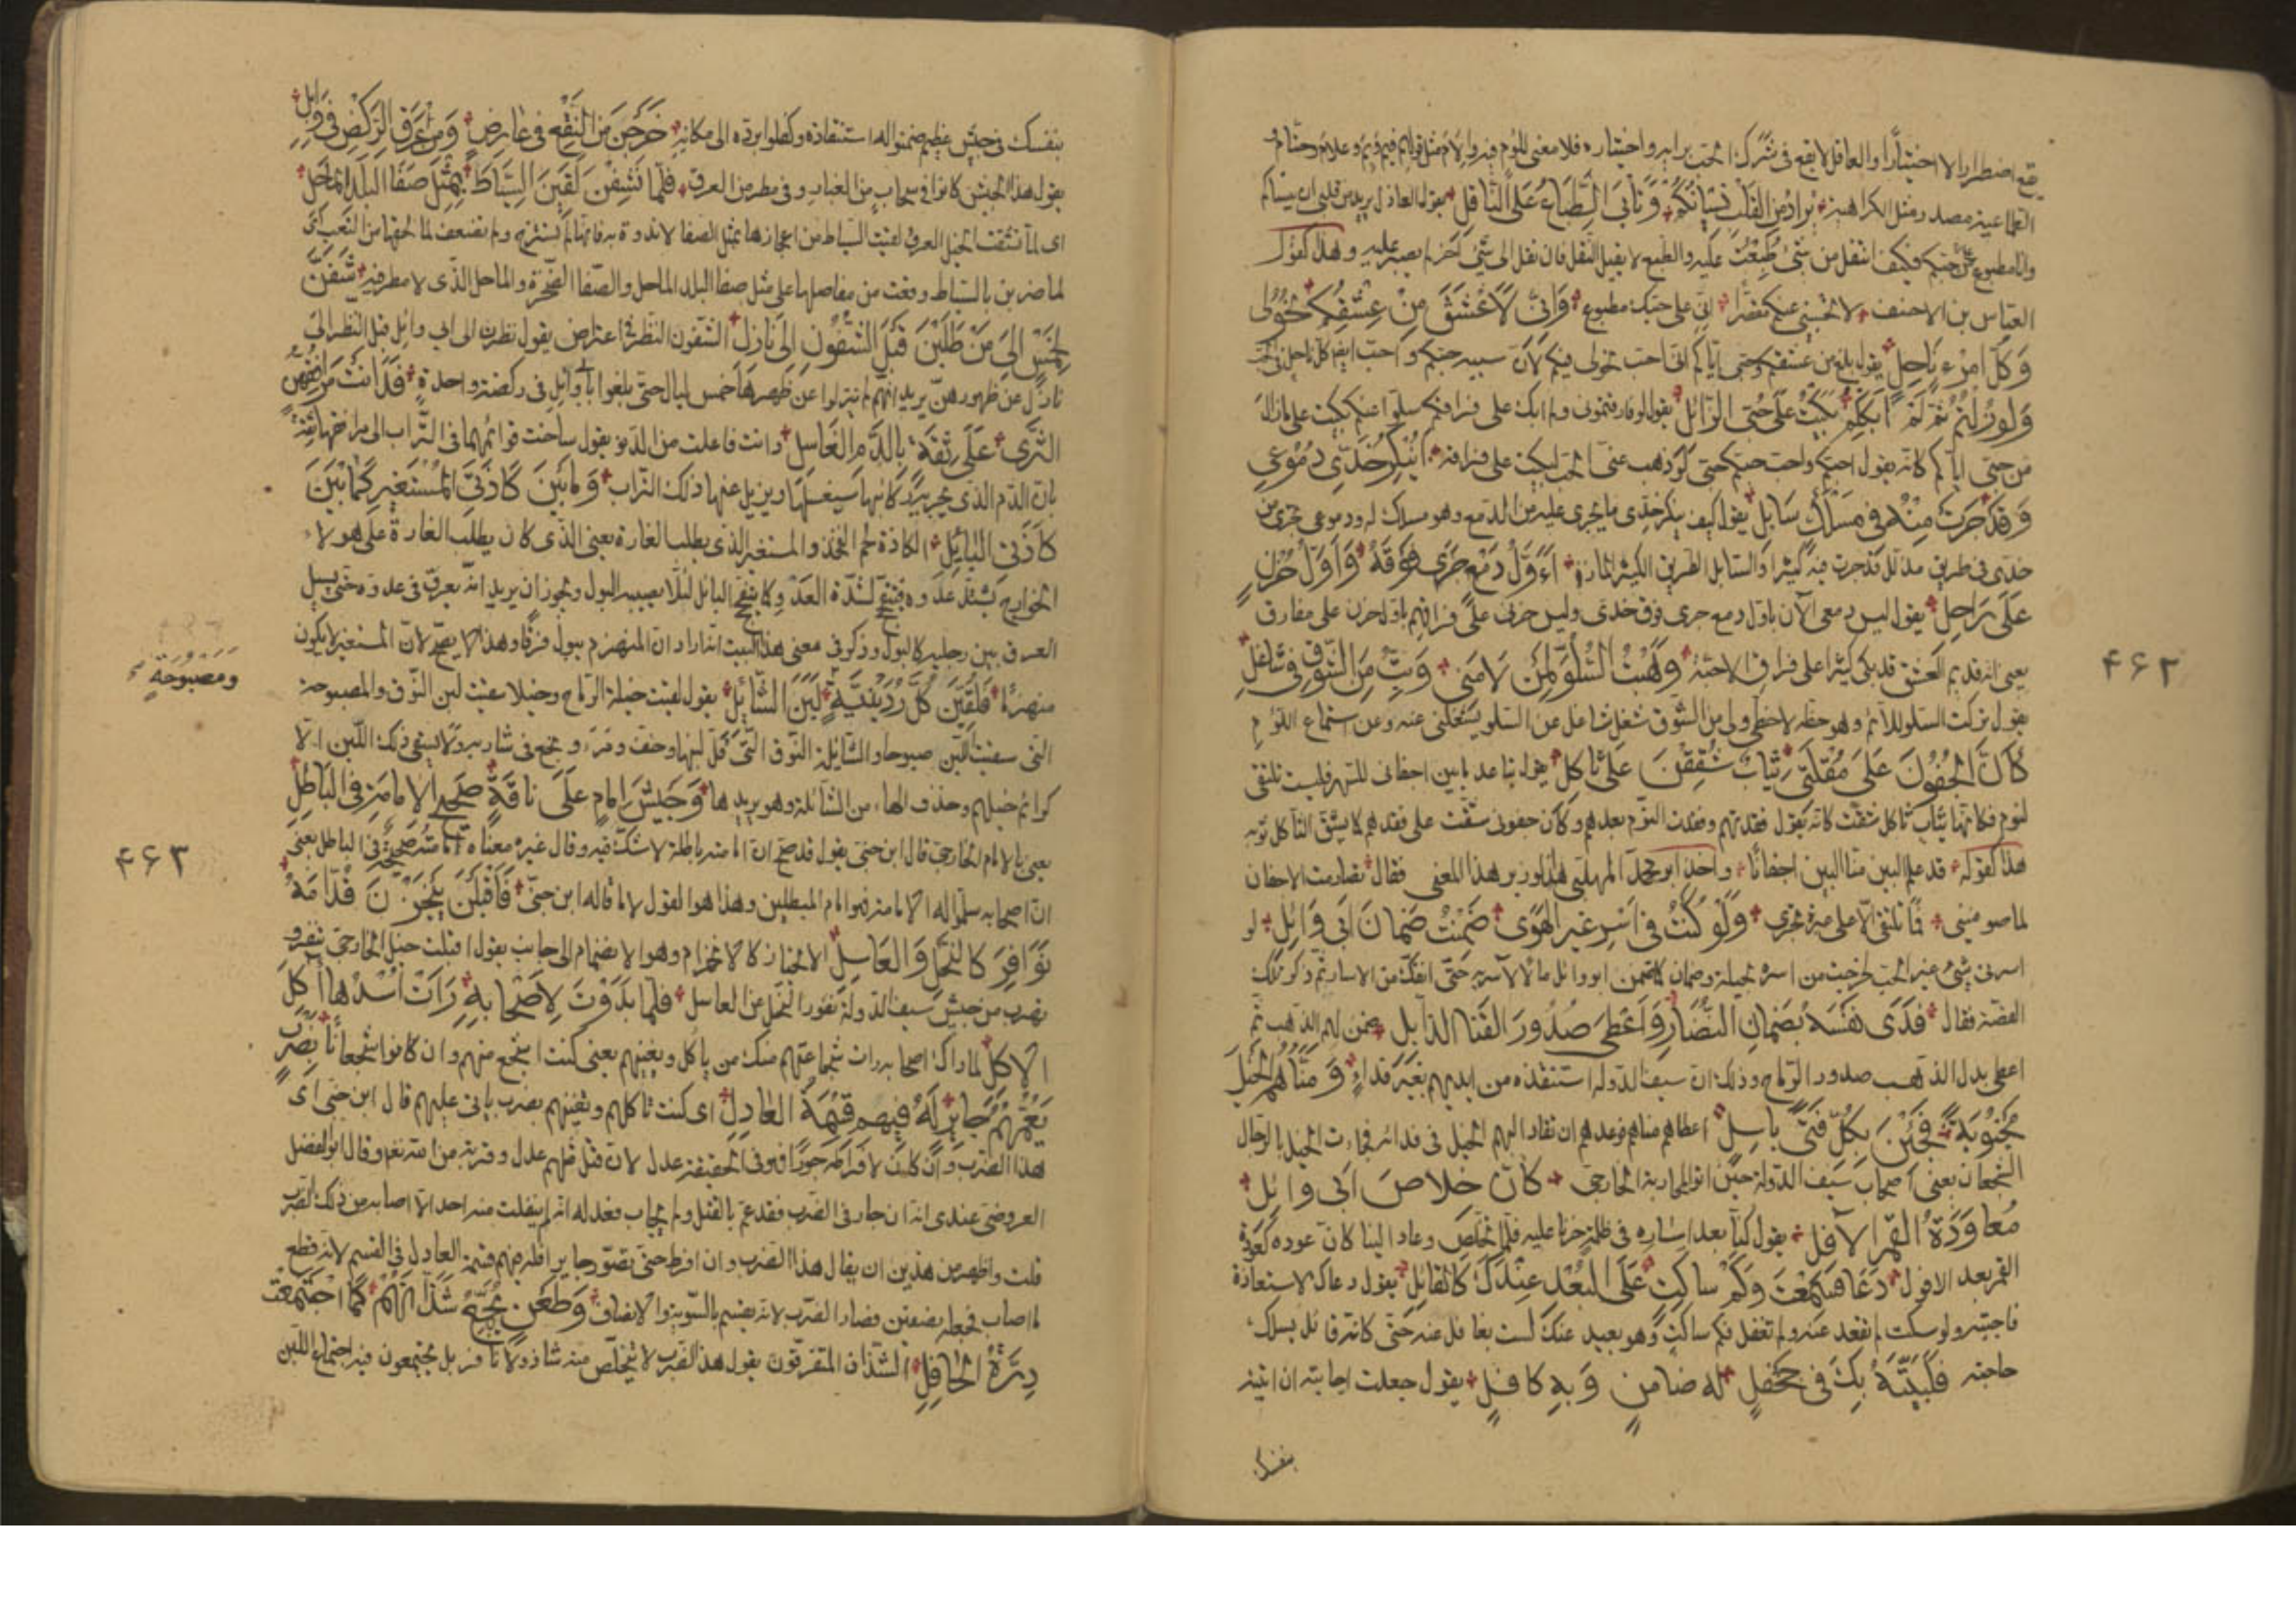 يقع اضطرارا لا اختيارا والعاقل لا يقع في شرك الحب برايه واختياره فلا معنى للوم فيه
الطماعية مصدر مثل الكراهية يراد من القلب نسيانكم وتأبى الطباع على الناقل يقول العاذل يريد من قلبي ان ينساكم
وانا مطبوع على حبكم فكيف انتقل من شيء طبعت عليه والطبع لا يقبل النقل فان نقل الى شيء آخر لم يصبر عليه وهذا كقول
العباس بن الاحنف لا تحسبني عنكم مقصرا اني على حبك مطبوع وإني لأعشق من عشقكم نحولي
وكل امرء ناحل يقول بلغ من عشقكم وحبي اياكم اني احب نحولي فيكم لان سببه حبكم واحب ايضا كل ناحل في الحب
ولو زلتم ثم لم أبككم بكيت على حبي الزائل يقول لو فارقتموني ولم ابك على فراقكم سلوا عنكم لبكيت على ما زال
من حبي اياكم كانه يقول احبكم واحب حبكم حتى لو ذهب عني الحب لبكيت على فراقه أينكر خدي دموعي
وقد جرت منه في مسلك سابل يقول كيف ينكر خدي ما يجري عليه من الدمع وهو مسلك له ودموعي تجري من
خدي في طريق مذلل قد جرت فيه كثيرا والسابل الطريق الكثير المارة أأول دمع جرى فوقه وأول حزن
على راحل يقول ليس دمعي الآن باول دمع جرى فوق خدي وليس حزني على فراقهم باول حزن على مفارق
يعني انه قديم العشق قد بكى كثيرا على فراق الاحبة وهبت السلو لمن لامني وبت من الشوق في شاغل
يقول تركت السلو للائم وهو حظه لا حظي ولي من الشوق شغل شاغل عن السلو يشغلني عنه وعن استماع اللوم
كأن الجفون على مقلتي ثياب شققن على ثاكل يقول تباعد ما بين اجفاني للسهر فليست تلتقي
لنوم فكانها ثياب ثاكل شقت كانه يقول فقدتهم وفقدت النوم بعدهم وكان جفوني شقت على فقدهم كما يشق الثاكل ثوبه
هذا كقوله قد علم البين منا البين اجفانا واخذ ابو محمد المهلبي الوزير هذا المعنى فقال تصارمت الاجفان
لما صرمتني فما تلتقي الا على عبرة تجري ولو كنت في أسر غير الهوى ضمنت ضمان أبي وائل لو
اسرني شيء غير الحب لخرجت من اسره بحيلة وضمان كما ضمن ابو وائل مالا لآسريه حتى انفك من الاسار ثم ذكر تلك
القصة فقال فدى نفسه بضمان النضار وأعطى صدور القنا الذابل ضمن لهم الذهب ثم
اعطى بدل الذهب صدور الرماح وذلك ان سيف الدولة استنقذه من ايديهم بغير فداء ومناهم الخيل
مجنوبة فجئن بكل فتى باسل اعطاهم مناهم فوعدهم ان تقاد اليهم الخيل في فدائه فجاءت الخيل بالرجال
الشجعان يعني اصحاب سيف الدولة حين اتوا لمحاربة الخارجي كأن خلاص أبي وائل
معاودة القمر الآفل يقول كنا بعد اساره في ظلمة حزنا عليه فلما تخلص وعاد الينا كان عوده كعودة
القمر بعد الافول دعا فسمعت وكم ساكت على البعد عندك كالقائل يقول دعاك لاستعانة
فاجبته ولو سكت لم تقعد عنه ولم تغفل فكم ساكت وهو بعيد عنك لست بغافل عنه حتى كانه قائل يسالك
حاجته فلبيته بك في جحفل له ضامن وبه كافل يقول جعلت اجابته ان اتيته
بنفسك
۴۶۲
بنفسك في جيش عظيم ضمنوا له استنقاذه وكفلوا برده الى مكانه خرجن من النقع في عارض ومن عرق الركض في وابل
يقول هذا الجيش كانوا في سحاب من الغبار وفي مطر من العرق فلما نشفن لقين السياط بمثل صفا البلد الماحل
اي لما نشفت الخيل العرق لقيت السياط من اعجازها بمثل الصفا لا ندوة به فانها لم تسترخ ولم تضعف لما لحقها من التعب اي
لما ضربن بالسياط وقعت من مفاصلها على مثل صفا البلد الماحل والصفا الصخرة والماحل الذي لا مطر فيه شفن
لخمس إلى من طلبن قبل الشفون إلى نازل الشفون النظر في اعتراض يقول نظرن الى ابي وائل قبل النظر الى
نازل عن ظهورهن يريد انهم لم ينزلوا عن ظهرها خمس ليال حتى بلغوا ابا وائل في ركضة واحدة فدانت مرافقهن
الثرى على ثقة بالدم الغاسل دانت فاعلت من الدنو يقول ساخت قوائمها في التراب الى مرافقها ثقة
بان الدم الذي يجري كانها سيغسلها ويزيل عنها ذلك التراب وما بين كاذتي المستغير كما بين
كاذتي البائل الكاذة لحم الفخذ والمستغير الذي يطلب الغارة يعني الذي كان يطلب الغارة على هولاء
الخوارج يشتد عدوه فيتفحج لشدة العدو كما يتفحج البائل لئلا يصيبه البول ويجوز ان يريد انه يعرق في عدوه حتى يسيل
العرق بين رجليه كالبول وذكر في معنى هذا البيت انه اراد ان المنهزم يبول فرقا وهذا لا يصح لان المستغير لا يكون
منهزما فلقين كل ردينية لبن الشائل يقول لقيت خيله الرماح وخيلا سقيت لبن النوق والمصبوحة
التي سقيت اللبن صبوحا والشائلة النوق التي قل لبنها وخف ومرء ونجع في شاربه ولا يسقي ذلك اللبن الا
كرائم خيلهم وحذف الهاء من الشائلة وهو يريدها وجيش إمام على ناقة صحيح الإمامة في الباطل
يعني بالامام الخارجي قال ابن جني يقول قد صح ان امامته باطلة لا شك فيه وقال غيره معناه امامته صحيحة في الباطل يعني
ان اصحابه سلموا له الامامة فهو امام المبطلين وهذا هو القول لا ما قاله ابن جني فأقبلن ينحزن قدامه
نوافر كالنحل والعاسل الانحياز كالانهزام وهو الانضمام الى جانب يقول اقبلت خيل الخارجي تنفر و
تهرب من جيش سيف الدولة نفور النحل من العاسل فلما بدوت لأصحابه رأت أسدها آكل
الآكل لما راك اصحابه رات شجاعتهم منك من ياكل ويفنيهم يعني كنت اشجع منهم وان كانوا شجعانا بضرب
يعمهم جائر له فيهم قسمة العادل اي كنت تاكلهم وتفنيهم بضرب ياتي عليهم قال ابن جني اي
هذا الضرب وان كان لافراطه جورا فهو في الحقيقة عدل لان قتل مثلهم عدل وقربة من الله تعالى وقال ابو الفضل
العروضي عندي انه ان جار في الضرب فقد عم بالقتل ولم يحاب فعدله انه لم ينفلت منه احد الا اصابه من ذلك الضرب
قلت واظهر من هذين ان يقال هذا الضرب وان افرط حتى تصور جايرا فله فيهم قسمة العادل في القسم لانه قطع
ما اصاب فجعله نصفين فصار الضرب لانه يقسم بالسوية والانصاف وطعن يجمع شذانهم كما اجتمعت
درة الحافل الشذان المتفرقون يقول هذا الضرب لا يتخلص منه شاذ ولا نافر بل يجتمعون فيه اجتماع اللبن
ومصبوحة
۴۶۳